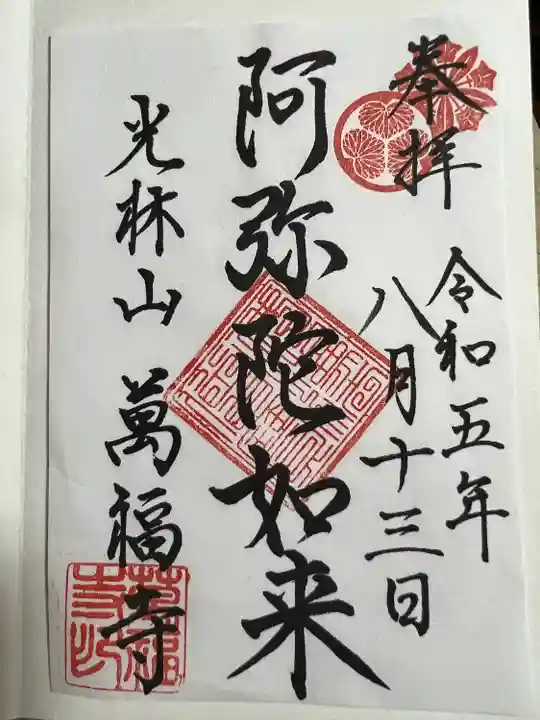 奉拝
令和五年
八月十三日
阿弥陀如来
光林山 萬福寺